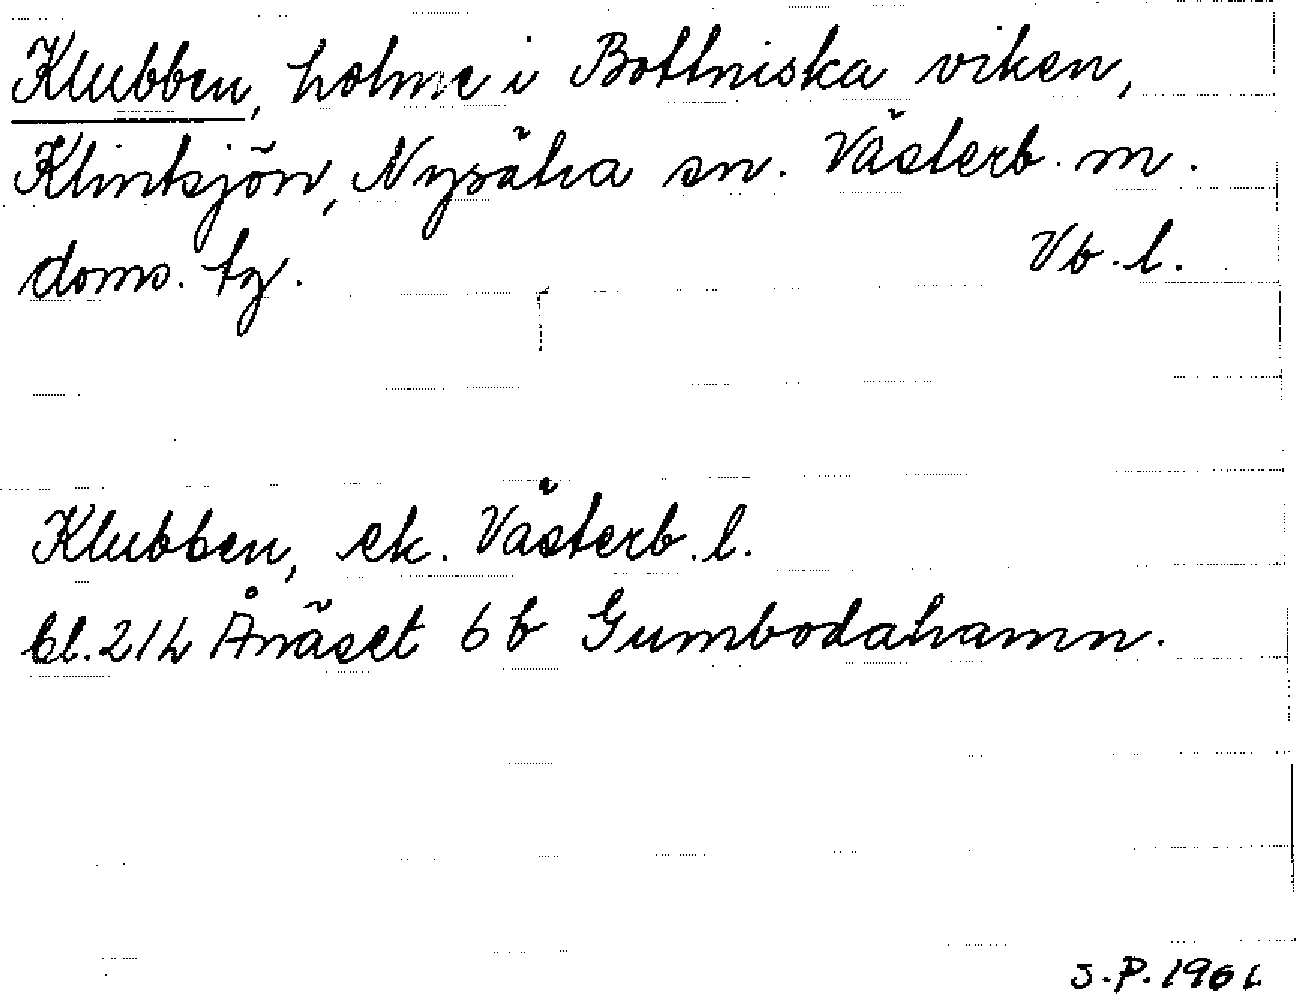 Klubben, holme i Bottniska viken,
Klintsjön, Nysätra sn. Västerb. m.
doms. tg. Vb. l.
Klubben, ek. Västerb. l.
bl. 21h Ånäset 6 b Gumbodahamn.
S.P. 196